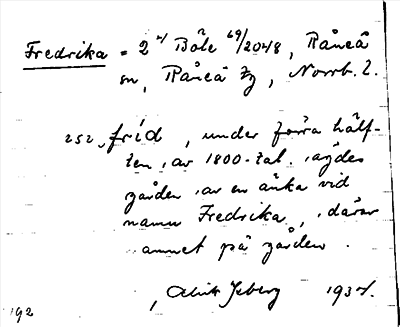 Fredrika = 2 4/ Böle 69/2048, Råneå
sn, Råneå tg, Norrb. l.
252. frid, under förra hälf-
ten av 1800-tal. ägdes
gården av en änka vid
namn Fredrika, därav
namnet på gården.
1937.
192